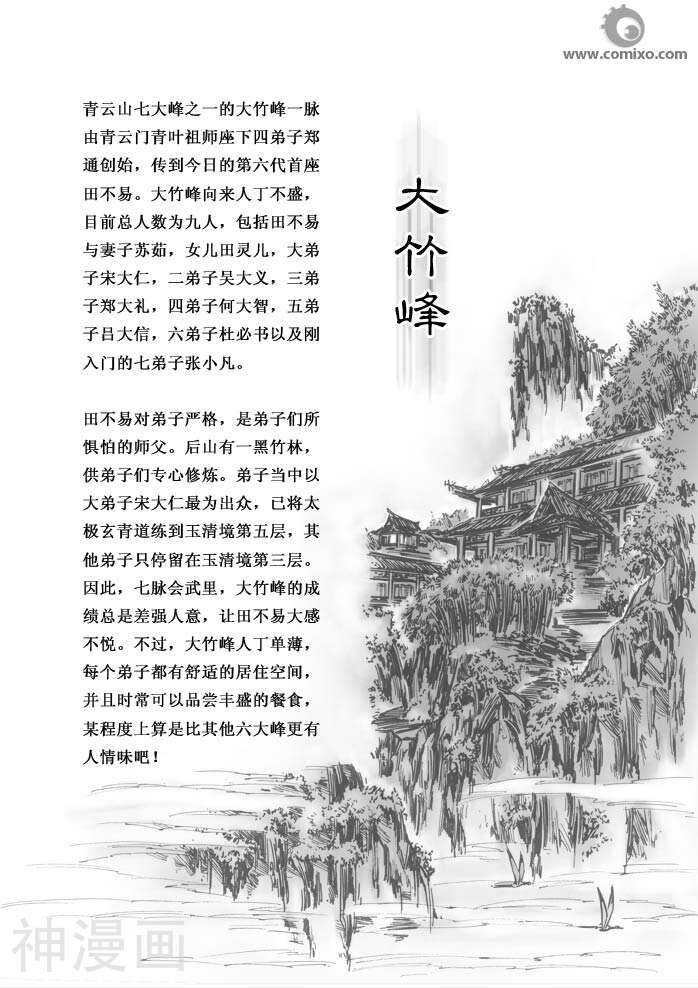 www.comixo.com
大竹峰
青云山七大峰之一的大竹峰一脉
由青云门青叶祖师座下四弟子郑
通创始，传到今日的第六代首座
田不易。大竹峰向来人丁不盛，
目前总人数为九人，包括田不易
与妻子苏茹，女儿田灵儿，大弟
子宋大仁，二弟子吴大义，三弟
子郑大礼，四弟子何大智，五弟
子吕大信，六弟子杜必书以及刚
入门的七弟子张小凡。
田不易对弟子严格，是弟子们所
惧怕的师父。后山有一黑竹林，
供弟子们专心修炼。弟子当中以
大弟子宋大仁最为出众，已将太
极玄青道练到玉清境第五层，其
他弟子只停留在玉清境第三层。
因此，七脉会武里，大竹峰的成
绩总是差强人意，让田不易大感
不悦。不过，大竹峰人丁单薄，
每个弟子都有舒适的居住空间，
并且时常可以品尝丰盛的餐食，
某程度上算是比其他六大峰更有
人情味吧！
神漫画